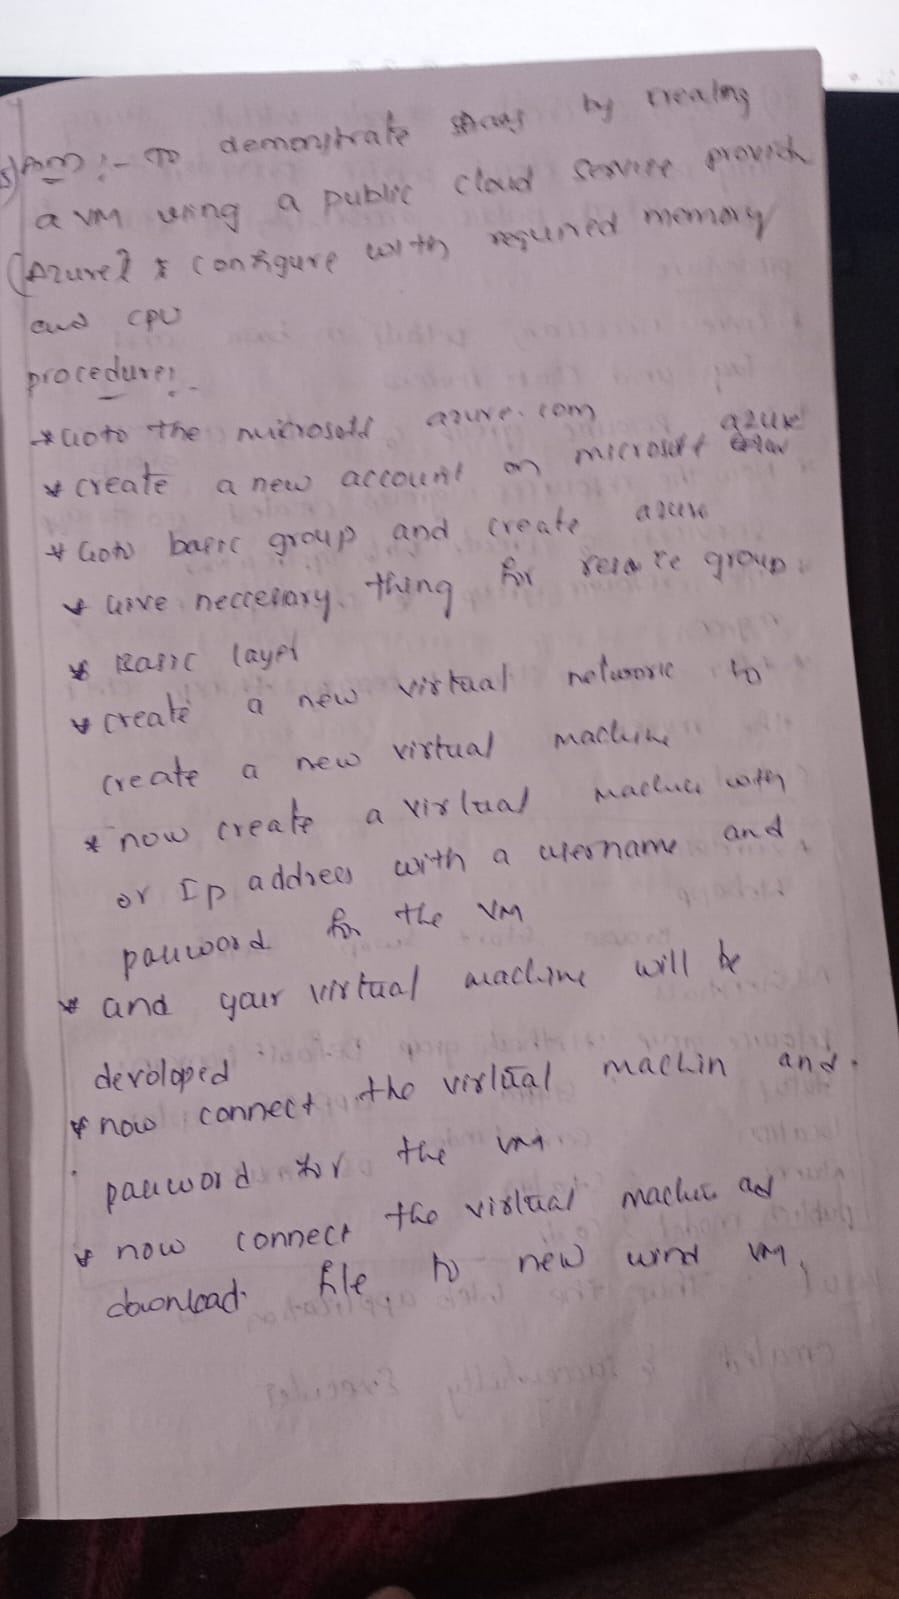 5) Aim :- To demonstrate by creating
a VM using a public cloud service provide
(Azure} & configure with required memory
and CPU
procedure:-
* Goto the microsoft azure.com
* create a new account on microsoft azure
* Goto basic group and create azure
* Give neccesary thing for group.
* Basic layer
* create a new virtual network to
create a new virtual machine
* now create a virtual machine with
or Ip address with a username and
password for the VM
* and your virtual machine will be
devoloped
* now connect the virtual machin and.
password for the VM
* now connect the virtual machine ad
download. file to new wind VM,